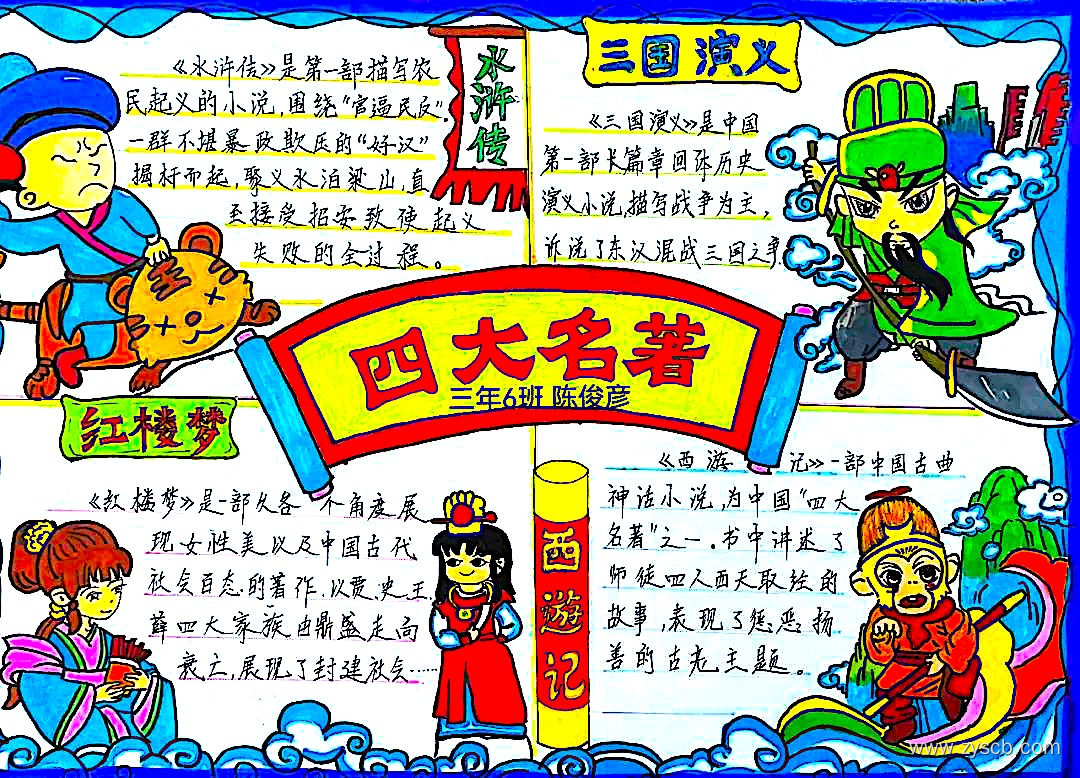 水浒传
《水浒传》是第一部描写农
民起义的小说,围绕"官逼民反"。
一群不堪暴政欺压的"好汉"
揭杆而起,聚义水泊梁山,直
至接受招安致使起义
失败的全过程。
三国演义
《三国演义》是中国
第一部长篇章回体历史
演义小说,描写战争为主,
诉说了东汉混战三国之争
四大名著
三年6班 陈俊彦
红楼梦
《红楼梦》是一部从各 个角度展
现女性美以及中国古代
社会百态的著作,以贾、史、王、
薛四大家族由鼎盛走向
衰亡,展现了封建社会……
西遊记
《西游 记》一部中国古典
神话小说,为中国"四大
名著"之一。书中讲述了
师徒四人西天取经的
故事,表现了惩恶扬
善的古老主题。
www.zyscb.com